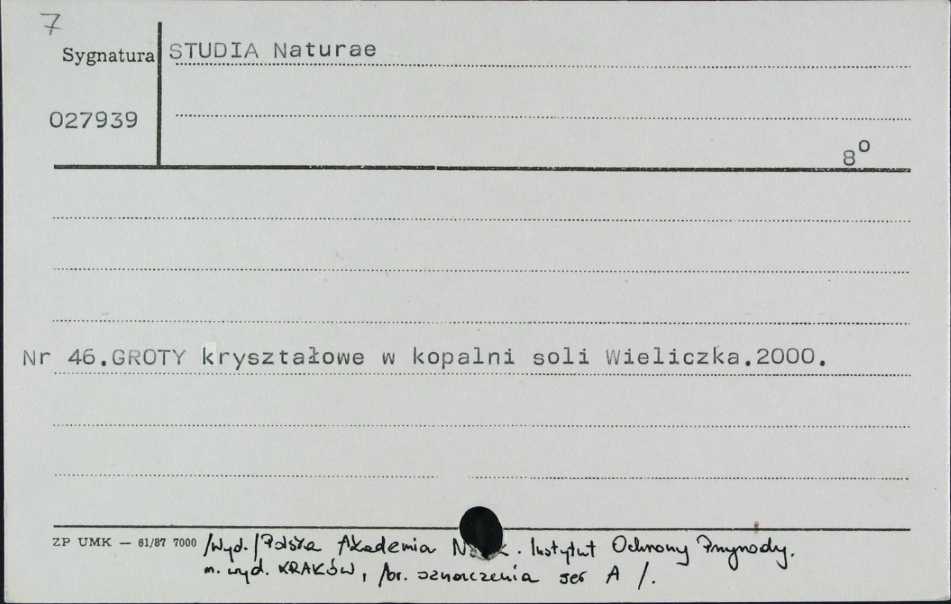 7
Sygnatura STUDIA Naturae
027939
8°
Nr 46.GROTY kryształowe w kopalni soli Wieliczka.2000.
ZP UMK — 61/87 7000 /Wyd./Polska Akademia . Instytut Ochrony Przyrody.
m. wyd. KRAKÓW, /br. oznaczenia ser A /.